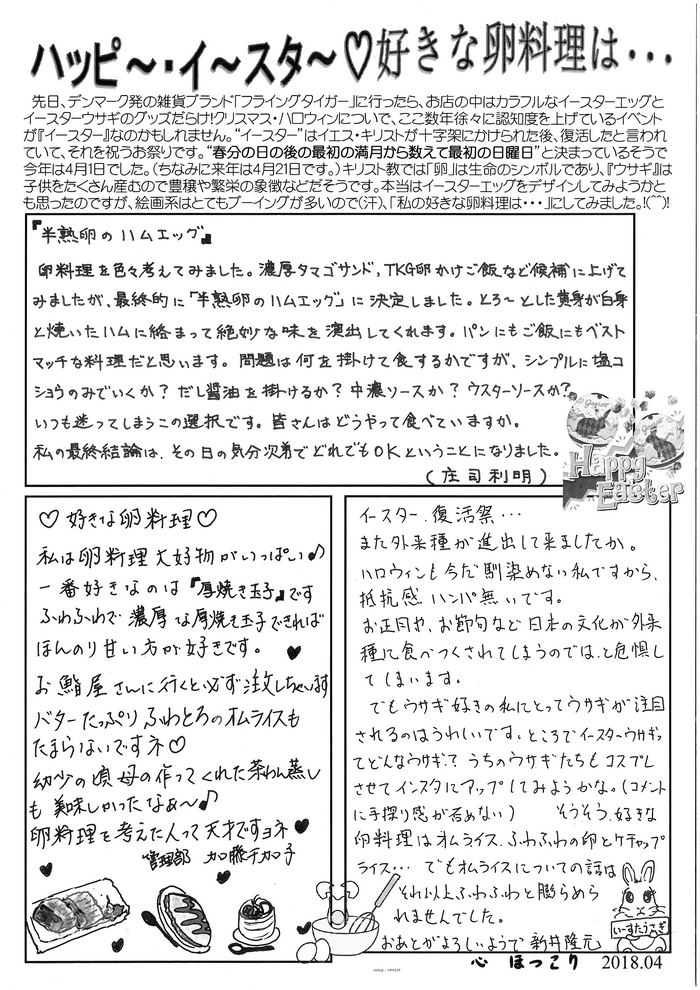 ハッピ～・イ～スタ～♡好きな卵料理は・・・
先日、デンマーク発の雑貨ブランド「フライングタイガー」に行ったら、お店の中はカラフルなイースターエッグと
イースターウサギのグッズだらけ!クリスマス・ハロウィンについで、ここ数年徐々に認知度を上げているイベント
が『イースター』なのかもしれません。“イースター”はイエス・キリストが十字架にかけられた後、復活したと言われ
ていて、それを祝うお祭りです。“春分の日の後の最初の満月から数えて最初の日曜日”と決まっているそうで
今年は4月1日でした。(ちなみに来年は4月21日です。)キリスト教では「卵」は生命のシンボルであり、『ウサギ』は
子供をたくさん産むので豊穣や繁栄の象徴などだそうです。本当はイースターエッグをデザインしてみようかと
も思ったのですが、絵画系はとてもブーイングが多いので(汗)、「私の好きな卵料理は・・・」にしてみました。!(^^)!
『半熟卵のハムエッグ』
卵料理を色々考えてみました。濃厚タマゴサンド、TKG卵かけご飯など候補に上げて
みましたが、最終的に「半熟卵のハムエッグ」に決定しました。とろ～とした黄身が白身
と焼いたハムに絡まって絶妙な味を演出してくれます。パンにもご飯にもベスト
マッチな料理だと思います。問題は何を掛けて食するかですが、シンプルに塩コ
ショウのみでいくか?だし醤油を掛けるか?中濃ソースか?ウスターソースか?
いつも迷ってしまうこの選択です。皆さんはどうやって食べていますか。
私の最終結論は、その日の気分次第でどれでもOKということになりました。
(庄司利明)
Happy
Easter
♡好きな卵料理♡
私は卵料理大好物がいっぱい♪
一番好きなのは『厚焼き玉子』です
ふわふわで濃厚な厚焼き玉子できれば
ほんのり甘い方が好きです。♥
お鮨屋さんに行くと必ず注文しちゃいます
バターたっぷりふわとろのオムライスも
たまらないですネ♡
幼少の頃母の作ってくれた茶わん蒸し
も美味しかったなぁ～♪
卵料理を考えた人って天才ですヨネ♥
管理部 加藤千加子
イースター、復活祭・・・
また外来種が進出して来ましたか。
ハロウィンも今だ馴染めない私ですから、
抵抗感ハンパ無いです。
お正月や、お節句など日本の文化が外来
種に食べつくされてしまうのでは、と危惧し
てしまいます。
でもウサギ好きの私にとってウサギが注目
されるのはうれしいです。ところでイースターウサギっ
てどんなウサギ?うちのウサギたちもコスプレ
させてインスタにアップしてみようかな。(コメント
に手探り感が否めない) そうそう、好きな
卵料理はオムライス、ふわふわの卵とケチャップ
ライス・・・でもオムライスについての話は
それ以上ふわふわと膨らめら
れませんでした。
おあとがよろしいようで 新井隆元
いーすたうさぎ
心 ほっこり 2018.04